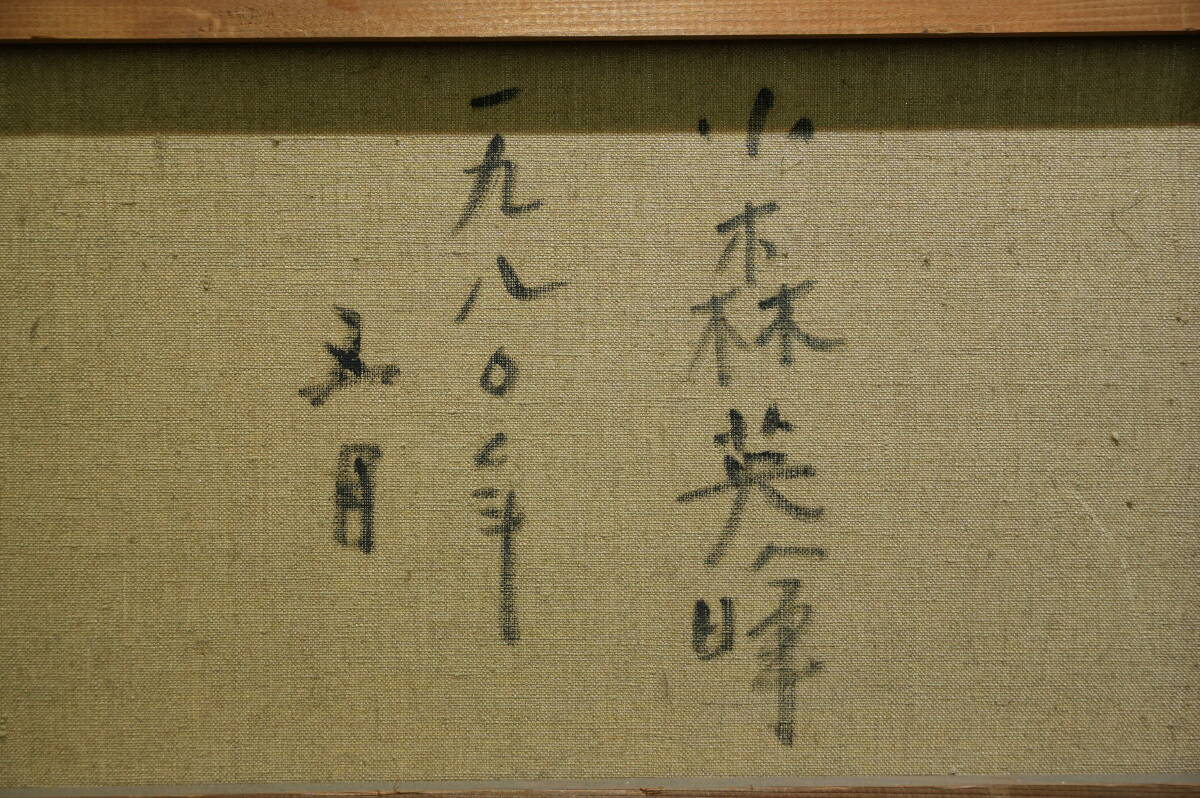 小森英暉
一九八〇年
五月